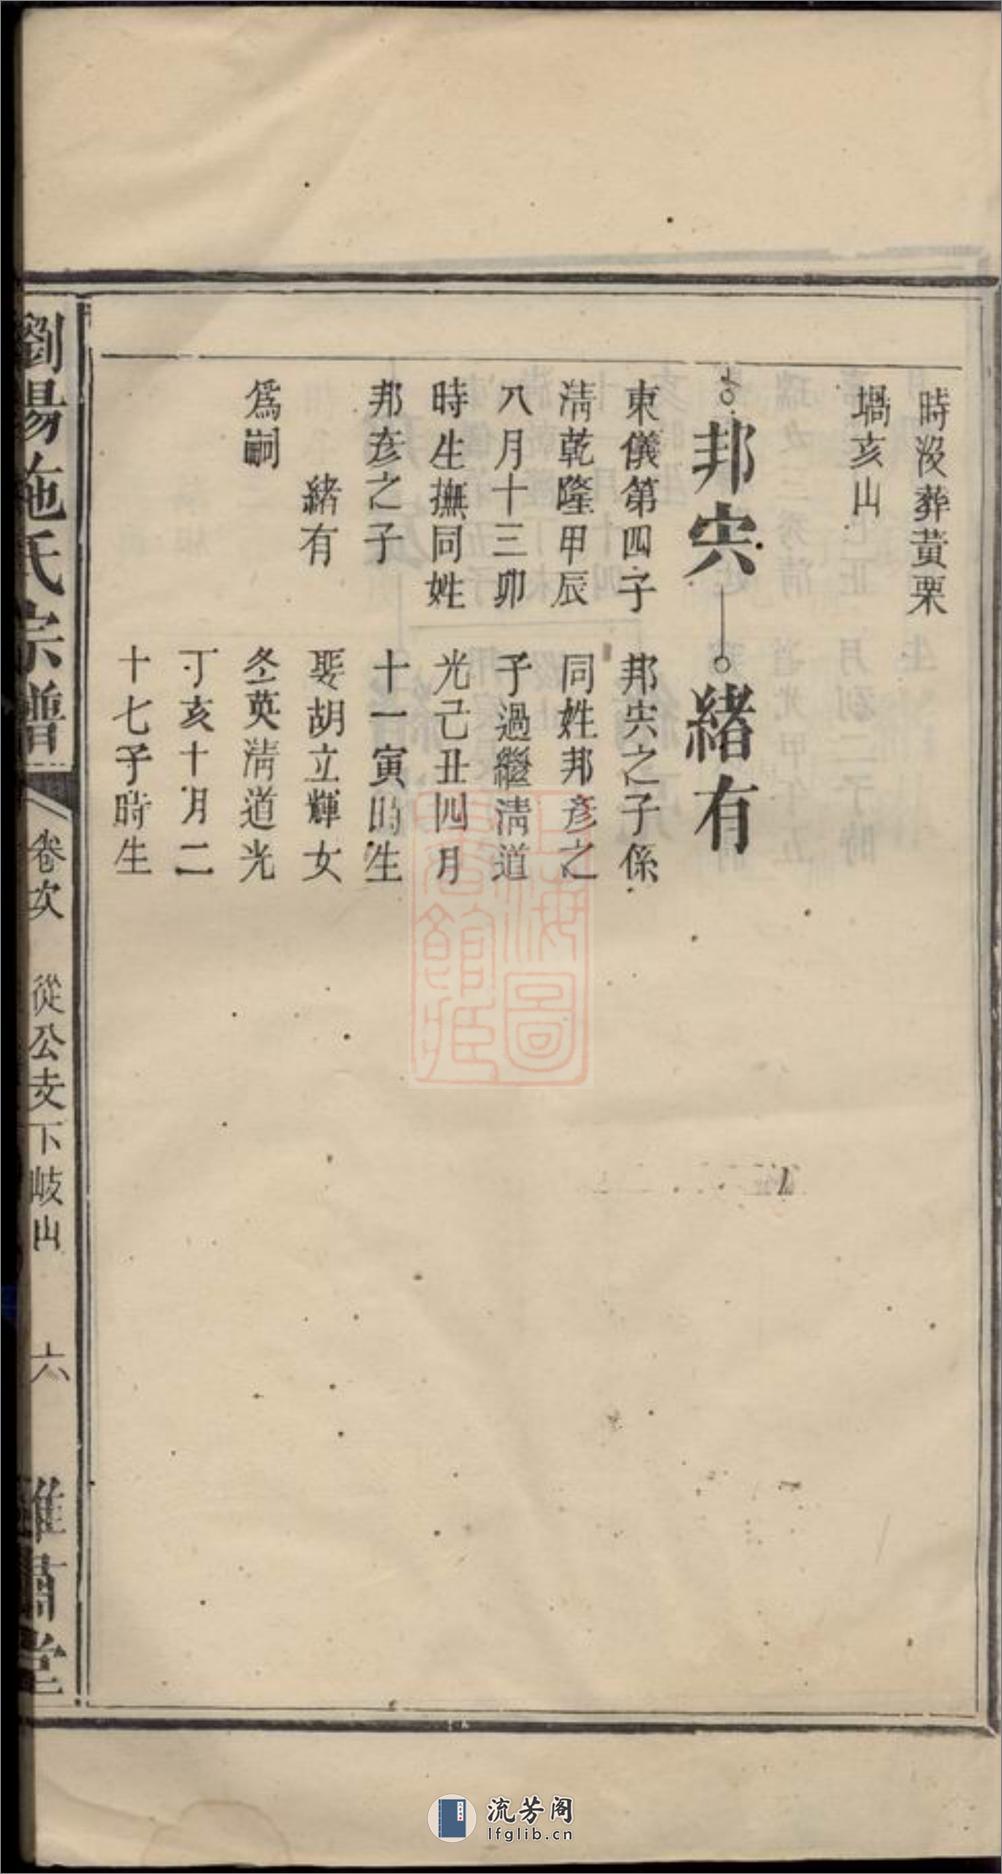 時沒葬黃栗
堝亥山
邦宍
緒有
東儀第四子
淸乾隆甲辰
八月十三卯
時生撫同姓
邦彥之子
緒有
爲嗣
邦宍之子係
同姓邦彥之
子過繼淸道
光己丑四月
十一寅時生
娶胡立輝女
冬英淸道光
丁亥十月二
十七子時生
劉陽施氏宗譜
卷次
從公支下岐山
六
雍肅堂
上海圖書館藏
流芳阁
lfglib.cn